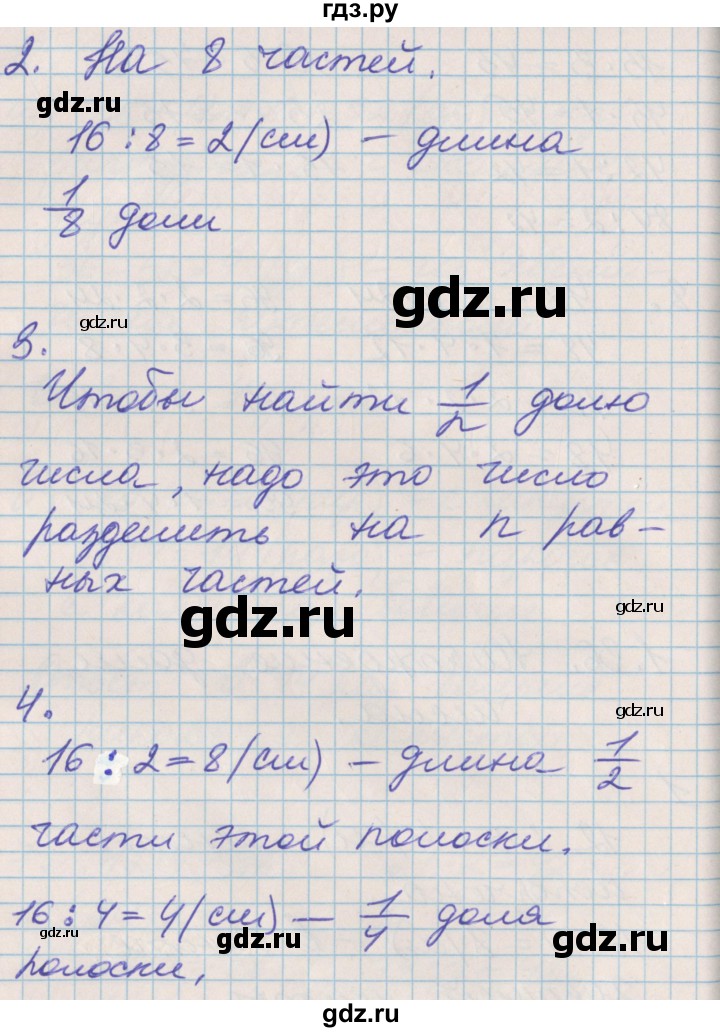 гдз.ру
2. На 8 частей.
gdz.ru
16 : 8 = 2 (см) – длина
1/8 доли
gdz.ru
gdz.ru
3.
Чтобы найти 1/n долю
числа, надо это число
разделить на n рав-
ных частей.
gdz.ru
gdz.ru
4.
gdz.ru
16 : 2 = 8 (см) – длина 1/2
части этой полоски.
16 : 4 = 4 (см) – 1/4 доля
gdz.ru
gdz.ru
полоски.
gdz.ru